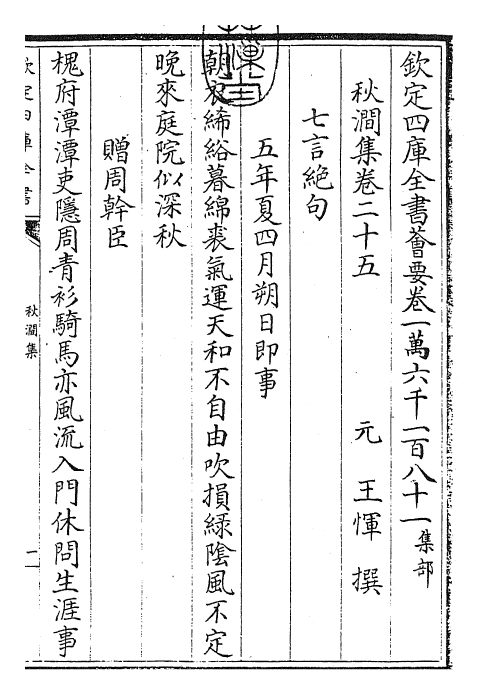 欽定四庫全書薈要卷一萬六千一百八十一集部
秋澗集卷二十五 元 王惲 撰
七言絶句
五年夏四月朔日即事
朝衣絺綌暮綿裘氣運天和不自由吹損緑隂風不定
晚來庭院似深秋
贈周幹臣
槐府潭潭吏隱周青衫騎馬亦風流入門休問生涯事
欽定四庫全書
秋澗集
一